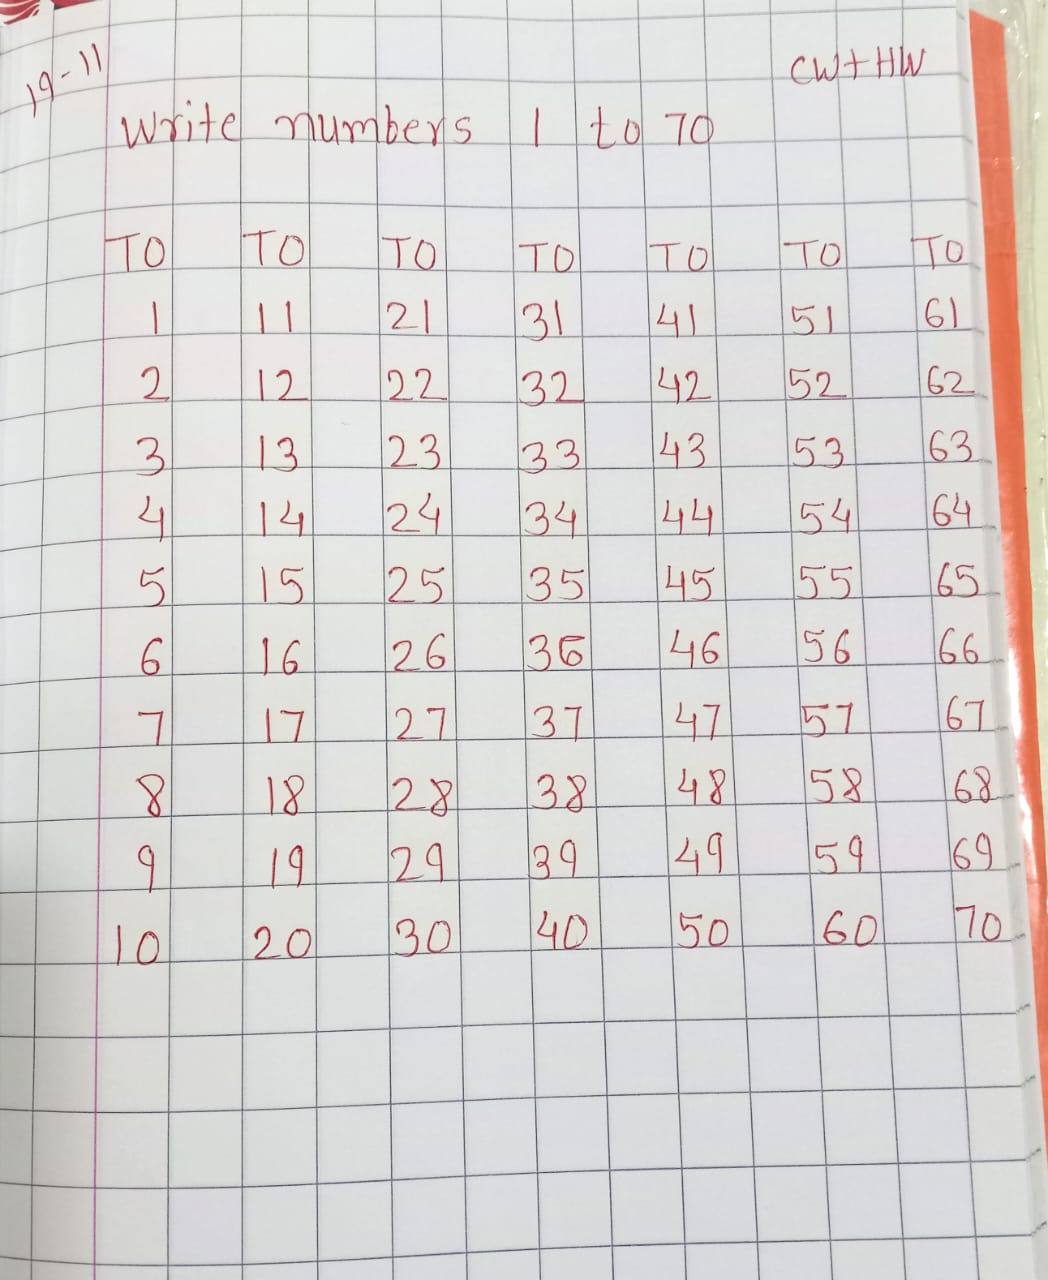 19-11
CW+HW
Write numbers 1 to 70
TO TO TO TO TO TO TO
1 11 21 31 41 51 61
2 12 22 32 42 52 62
3 13 23 33 43 53 63
4 14 24 34 44 54 64
5 15 25 35 45 55 65
6 16 26 36 46 56 66
7 17 27 37 47 57 67
8 18 28 38 48 58 68
9 19 29 39 49 59 69
10 20 30 40 50 60 70